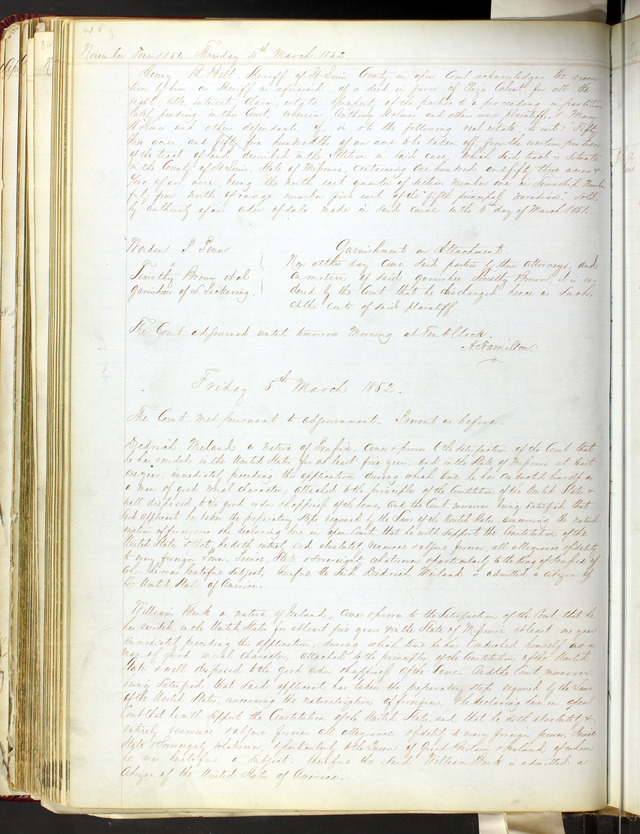 November Term 1851. Thursday 4th March 1852
Henry Holt, Sheriff of St Louis County in open Court acknowledges the
by him as Sheriff as aforesaid of a deed in favor of for all the
right title, interest, claim, estate & property of the parties to a proceeding in partition
lately pending in this Court, wherein Holmes and others were plaintiffs & Mary
Holmes and others defendants, of, in & to the following real estate, to wit: Fifty
three acres and fifty five hundredths of an acre to be taken off from the western
of the tract of land described in the petition in said case, which said tract is situate
in the County of St Louis, State of Missouri, containing one hundred and fifty three acres &
of an acre, being the north east quarter of section number one in Township number
forty four north of range number five east of the fifth principal meridian. Sold
by authority of an order of sale made in said cause on the day of March 1851.
Penn
vs
Timothy Brown et al
garnishees of L. Pickering.
Garnishment on Attachment.
Now at this day come said parties by their attorneys, and
on motion of said garnishee Timothy Brown, it is or
dered by the Court that he be discharged hence as such
at the costs of said plaintiff.
The Court adjourned until tomorrow morning at Ten o'Clock.
A Hamilton
Friday 5th March 1852.
The Court met pursuant to adjournment. Present as before.
Diedrich a native of Prussia, comes & proves to the satisfaction of the Court that
he has resided in the United States for at least five years and in the State of Missouri at least
one year, immediately preceding this application, during which time he has conducted himself as
a man of good moral character, attached to the principles of the Constitution of the United States &
well disposed to the good order & happiness of the same, and the Court moreover being satisfied that
said applicant has taken the preparatory steps required by the laws of the United States concerning the natural
ization of foreigners, & he declaring here in open Court, that he will support the Constitution of the
United States & that he doth entirely and absolutely renounce & abjure forever, all allegiance & fidelity
to every foreign Power, Prince, State & Sovereignty whatsoever & particularly to the King of Prussia of
whom he was heretofore subject, therefore the said Diedrich is admitted a citizen of
the United States of America.
William a native of Ireland, comes & proves to the satisfaction of the Court, that he
has resided in the United States at least five years & in the State of Missouri at least one year
immediately preceding this application, during which time he has conducted himself as a
man of good moral character, attached to the principles of the Constitution of the United
States & well disposed to the good order & happiness of the same. And the Court moreover
being satisfied that said applicant has taken the preparatory steps required by the laws
of the United States concerning the naturalization of foreigners, & he declaring here in open
Court that he will support the Constitution of the United States, and that he doth absolutely &
entirely renounce & abjure forever all allegiance & fidelity to every foreign power, Prince
State & Sovereignty whatsoever, & particularly to the Queen of Great Britain & Ireland of whom
he was heretofore a subject. Therefore the said William is admitted a
Citizen of the United States of America.